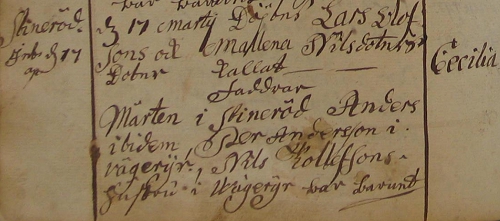 Skineröd.
d 17 Martij Döptes Lars Olof
sons och Mallena Nilsdotters
Dotter Kallat
Cecilia
Faddrar
Mårten i Skineröd Anders
ibidem, Per Andersson i
Vägeryr, Nils Kollessons
hustru i Wägeryr bar barnet